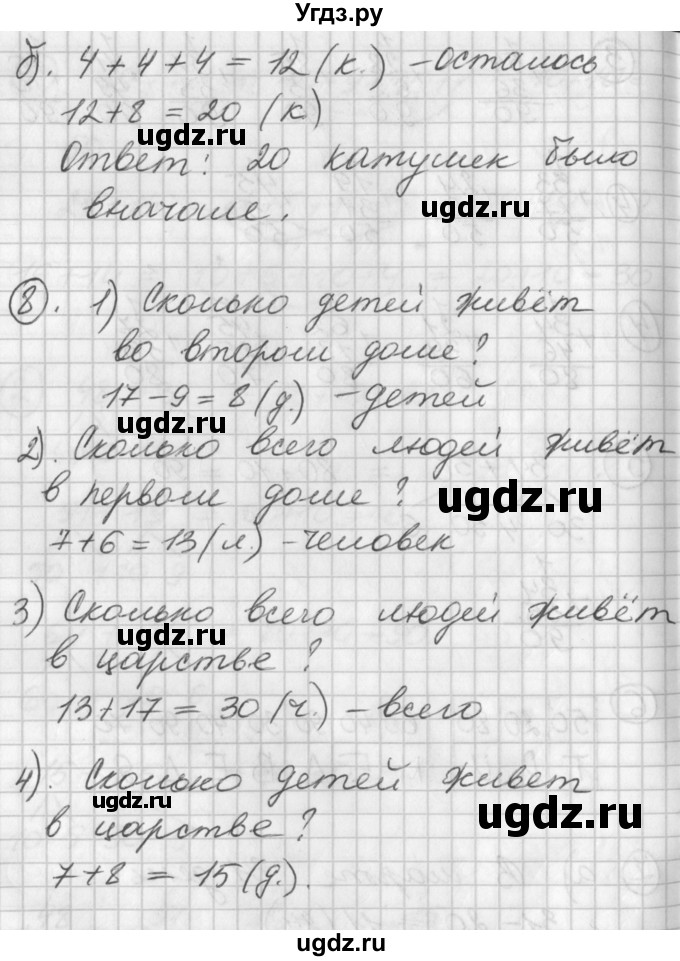 Угдз.ру
б). 4 + 4 + 4 = 12 (к.) – осталось
12 + 8 = 20 (к)
ugdz.ru
Ответ: 20 катушек было
ugdz.ru
вначале.
8. 1) Сколько детей живёт
во втором доме?
17 – 9 = 8 (д.) – детей
ugdz.ru
2). Сколько всего людей живёт
в первом доме?
ugdz.ru
7 + 6 = 13 (л.) – человек
3) Сколько всего людей живёт
ugdz.ru
в царстве?
13 + 17 = 30 (ч.) – всего
4). Сколько детей живет
в царстве?
ugdz.ru
ugdz.ru
7 + 8 = 15 (д.).
ugdz.ru